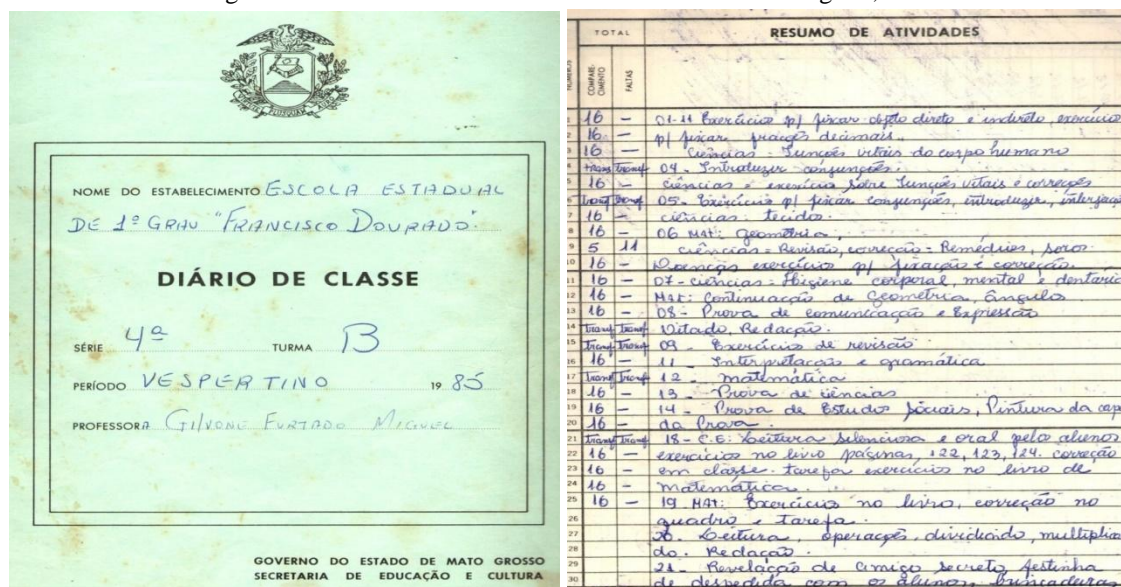 NOME DO ESTABELECIMENTO ESCOLA ESTADUAL
DE 1º GRAU "FRANCISCO DOURADO"
DIÁRIO DE CLASSE
SÉRIE 4ª TURMA B
PERÍODO VESPERTINO 19 85
PROFESSORA GILVONE FURTADO MIGUEL
GOVERNO DO ESTADO DE MATO GROSSO
SECRETARIA DE EDUCAÇÃO E CULTURA
TOTAL RESUMO DE ATIVIDADES
COMPARECIMENTO FALTAS
16 - 01-11 Exercícios p/ fixar objeto direto e indireto, exercícios
16 - p/ fixar frações decimais.
16 - Ciências: Funções vitais do corpo humano
transf transf 04. Introduzir conjunções.
16 - Ciências = exercício sobre funções vitais e correções
transf transf 05. Exercícios p/ fixar conjunções, introduzir, interjeição
16 - ciências: tecidos.
16 - 06 MAT: geometria,
5 11 ciências = Revisão, correção = Remédios, soros.
16 - Doenças exercício p/ fixação e correção.
16 - 07- ciências: Higiene corporal, mental e dentária
16 - MAT: Continuação de Geometria, ângulos
16 - 08 - Prova de comunicação e Expressão
transf transf Ditado, Redação.
transf transf 09 - Exercícios de revisão
16 - 11 - Interpretação e gramática
transf transf 12 - matemática
16 - 13 - Prova de ciências
16 - 14 - Prova de Estudos Sociais, Pintura da capa
16 - da Prova.
transf transf 18 - C.E: Leitura silenciosa e oral pelos alunos
16 - exercícios no livro páginas, 122, 123, 124. correção
16 - em classe. tarefa exercícios no livro de
16 - matemática.
16 - 19 MAT: Exercícios no livro, correção no
quadro e tarefa.
20. Leitura, operações dividindo, multiplican
do. Redação.
21 - Revelação de amigo secreto festinha
de despedida com os alunos, brincadeiras